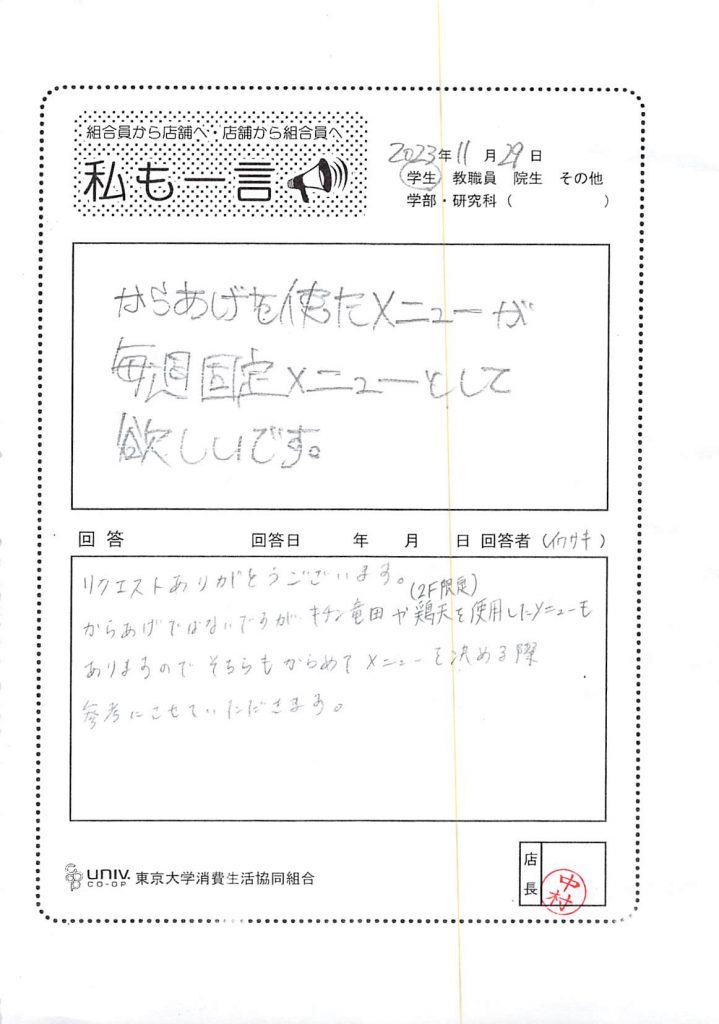 組合員から店舗へ・店舗から組合員へ
私も一言
2023年11月29日
学生 教職員 院生 その他
学部・研究科( )
からあげを使ったメニューが
毎週固定メニューとして
欲しいです。
回答 回答日 年 月 日 回答者(イワサキ)
リクエストありがとうございます。
(2F限定)
からあげではないですが、チキン竜田や鶏天を使用したメニューも
ありますので そちらもからめて メニューを決める際
参考にさせていただきます。
UNIV.
CO-OP
東京大学消費生活協同組合
店長
中村